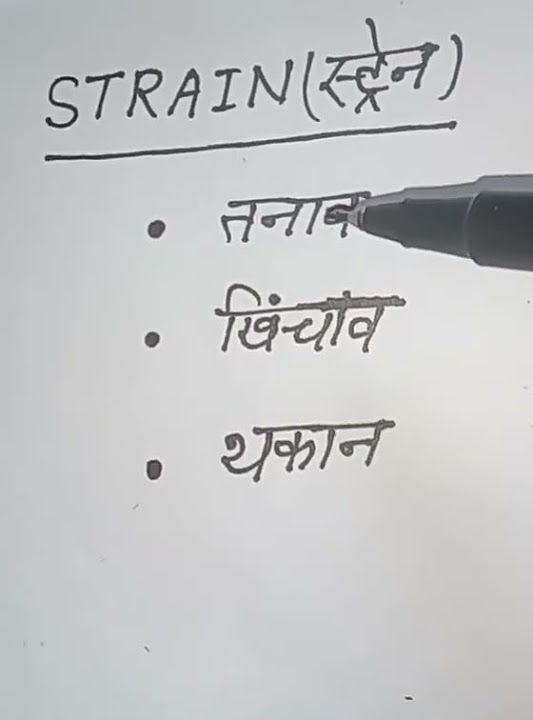 STRAIN(स्ट्रेन)
• तनाव
• खिंचाव
• थकान